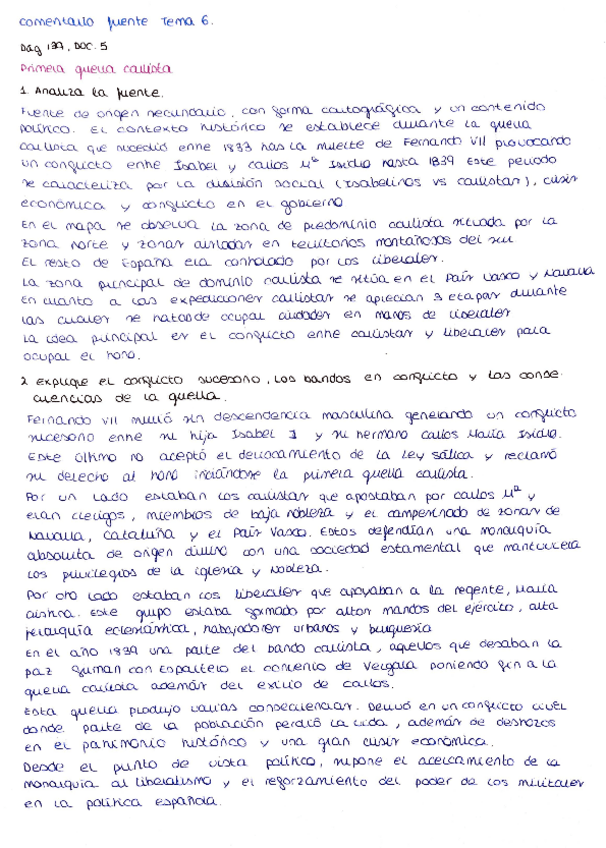 comentario fuente Tema 6.
Pág 139, DOC. 5
Primera guerra carlista
1. Analiza la fuente.
Fuente de origen secundario, con forma cartográfica y un contenido
político. El contexto histórico se establece durante la guerra
carlista que sucedió entre 1833 tras la muerte de Fernando VII provocando
un conflicto entre Isabel y Carlos Mª Isidro hasta 1839 Este periodo
se caracteriza por la división social (Isabelinos vs carlistas), crisis
económica y conflicto en el gobierno
En el mapa se observa la zona de predominio carlista situada por la
zona norte y zonas aisladas en territorios montañosos del sur
El resto de España era controlado por los liberales.
La zona principal de dominio carlista se sitúa en el País Vasco y Navarra
En cuanto a las expediciones carlistas se aprecian 3 etapas durante
las cuales se trata de ocupar ciudades en manos de liberales
La idea principal es el conflicto entre carlistas y liberales para
ocupar el trono.
2. Explique el conflicto sucesorio, los bandos en conflicto y las conse-
cuencias de la guerra.
Fernando VII murió sin descendencia masculina generando un conflicto
sucesorio entre su hija Isabel I y su hermano Carlos María Isidro.
Este último no aceptó el derrocamiento de la Ley sálica y reclamó
su derecho al trono iniciándose la primera guerra carlista.
Por un lado estaban los carlistas que apostaban por Carlos Mª y
eran clerigos, miembros de baja nobleza y el campesinado de zonas de
Navarra, Cataluña y el País Vasco. Estos defendían una monarquía
absoluta de origen divino con una sociedad estamental que mantuviera
los privilegios de la iglesia y nobleza.
Por otro lado estaban los liberales que apoyaban a la regente, María
cristina. Este grupo estaba formado por altos mandos del ejército, alta
jerarquía eclesiástica, trabajadores urbanos y burguesía
En el año 1839 una parte del bando carlista, aquellos que deseaban la
paz firman con Espartero el convenio de Vergara poniendo fin a la
guerra carlista además del exilio de carlos.
Esta guerra produjo varias consecuencias. Derivó en un conflicto civil
donde parte de la población perdió la vida, además de destrozos
en el patrimonio histórico y una gran crisis económica.
Desde el punto de vista político, supone el acercamiento de la
monarquía al liberalismo y el reforzamiento del poder de los militares
en la política española.